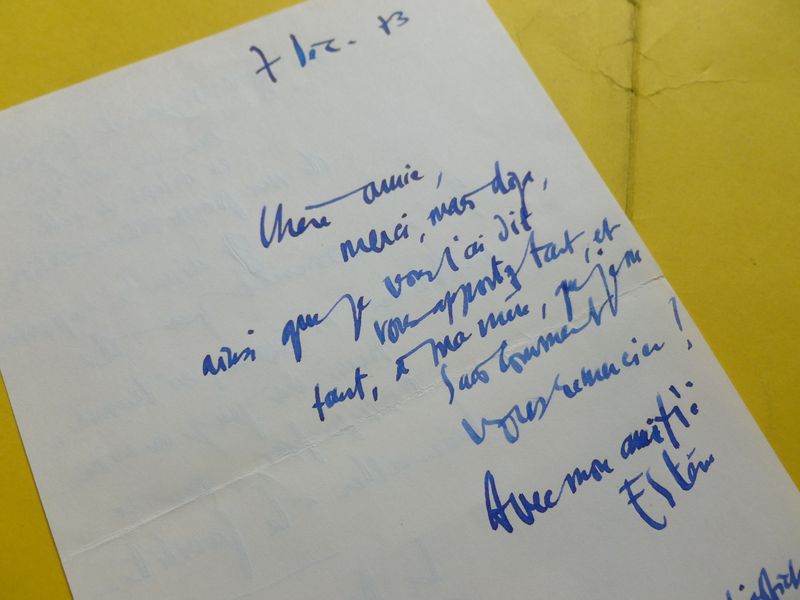 7 Déc. 73
Chère amie,
merci, mais déjà,
ainsi que je vous l'ai dit
vous apportez tant, et
tant, à ma mère, que je ne
sais comment
vous remercier !
Avec mon amitié